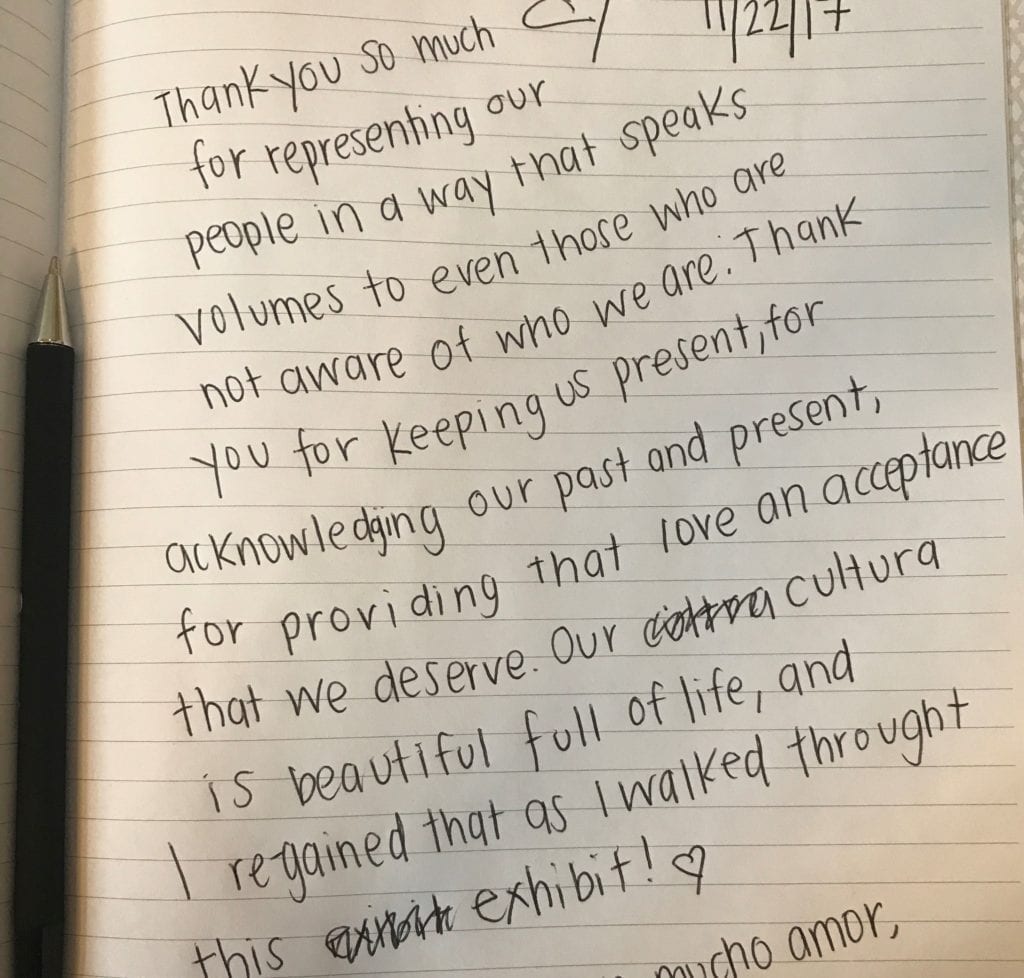 11/22/17
Thank you so much
for representing our
people in a way that speaks
volumes to even those who are
not aware of who we are. Thank
you for keeping us present, for
acknowledging our past and present,
for providing that love an acceptance
that we deserve. Our cultura
is beautiful full of life, and
I regained that as I walked throught
this exhibit! ♡
mucho amor,